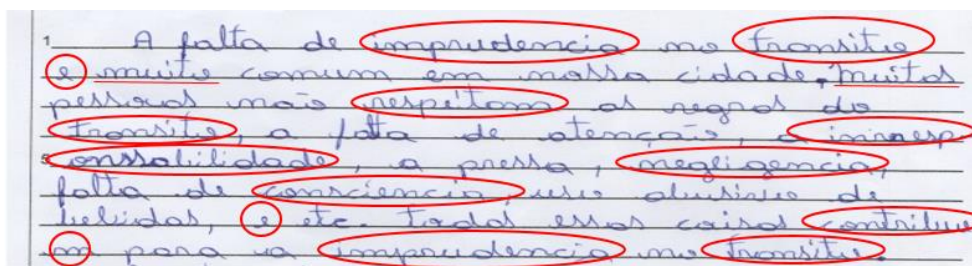 1 A falta de imprudencia no transito
e muito comum em nossa cidade, muitas
pessoas não respeitam as regras do
transito, a fata de atenção, a inrresp
5 onssabilidade, a pressa, negligencia,
falta de consciencia, uso abusivo de
bebidas, e etc. todas essas coisas contribue
m para a imprudencia no transito.